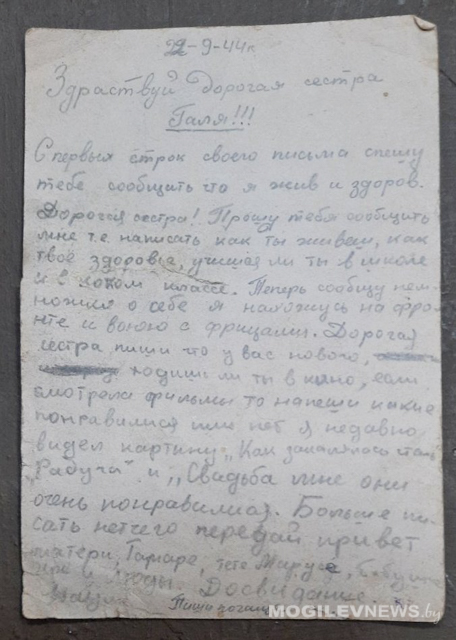 22-9-44г.
Здраствуй дорогая сестра
Галя!!!
С первых строк своего письма спешу
тебе сообщить что я жив и здоров.
Дорогая сестра! Прошу тебя сообщить
мне т.е. написать как ты живеш, как
твое здоровье, учишся ли ты в школе
и в каком классе. Теперь сообщу нем-
ножко о себе я нахожусь на фро-
нте и воюю с фрицами. Дорогая
сестра пиши что у вас нового,
ходиш ли ты в кино, если
смотрела фильмы то напиши какие
понравилися или нет я недавно
видел картину „Как закалялась сталь
Радуга" и „Свадьба мне они
очень понравились. Больше пи-
сать нетчего передай привет
матери Тамаре, тете Марусе,
Досвидание.
Пиши
MOGILEVNEWS.by